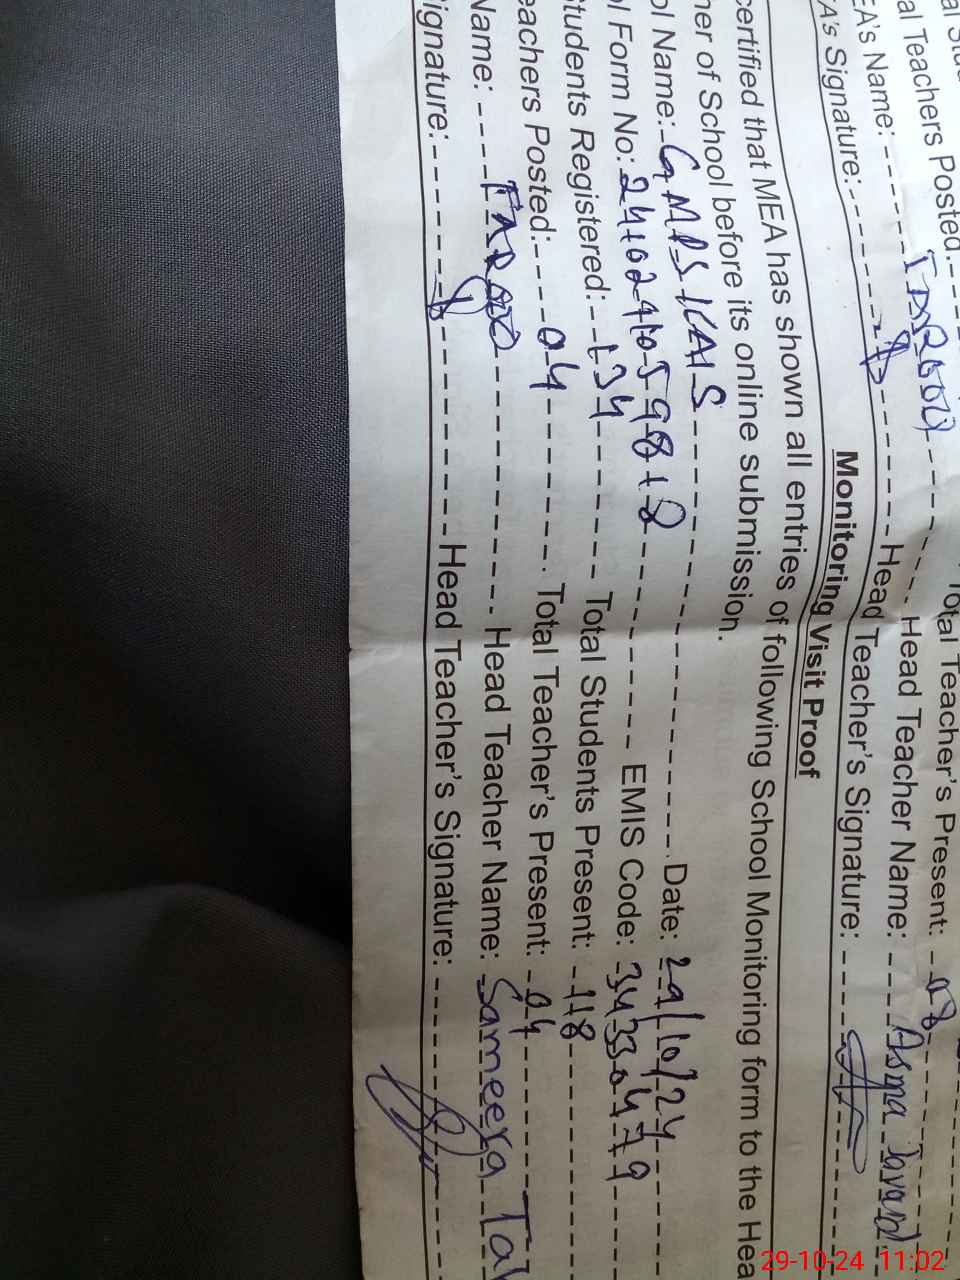 al Teachers Posted. Total Teacher's Present: 08
EA's Name: FAROOQ Head Teacher Name: Asma Javaid
A's Signature: Head Teacher's Signature:
Monitoring Visit Proof
certified that MEA has shown all entries of following School Monitoring form to the Hea
her of School before its online submission.
ol Name: GMPS KAIS Date: 29/10/24
l Form No: EMIS Code: 34330479
tudents Registered: 134 Total Students Present: 118
eachers Posted: 04 Total Teacher's Present: 04
Name: FAROOQ Head Teacher Name: Sameera
ignature: Head Teacher's Signature:
29-10-24 11:02